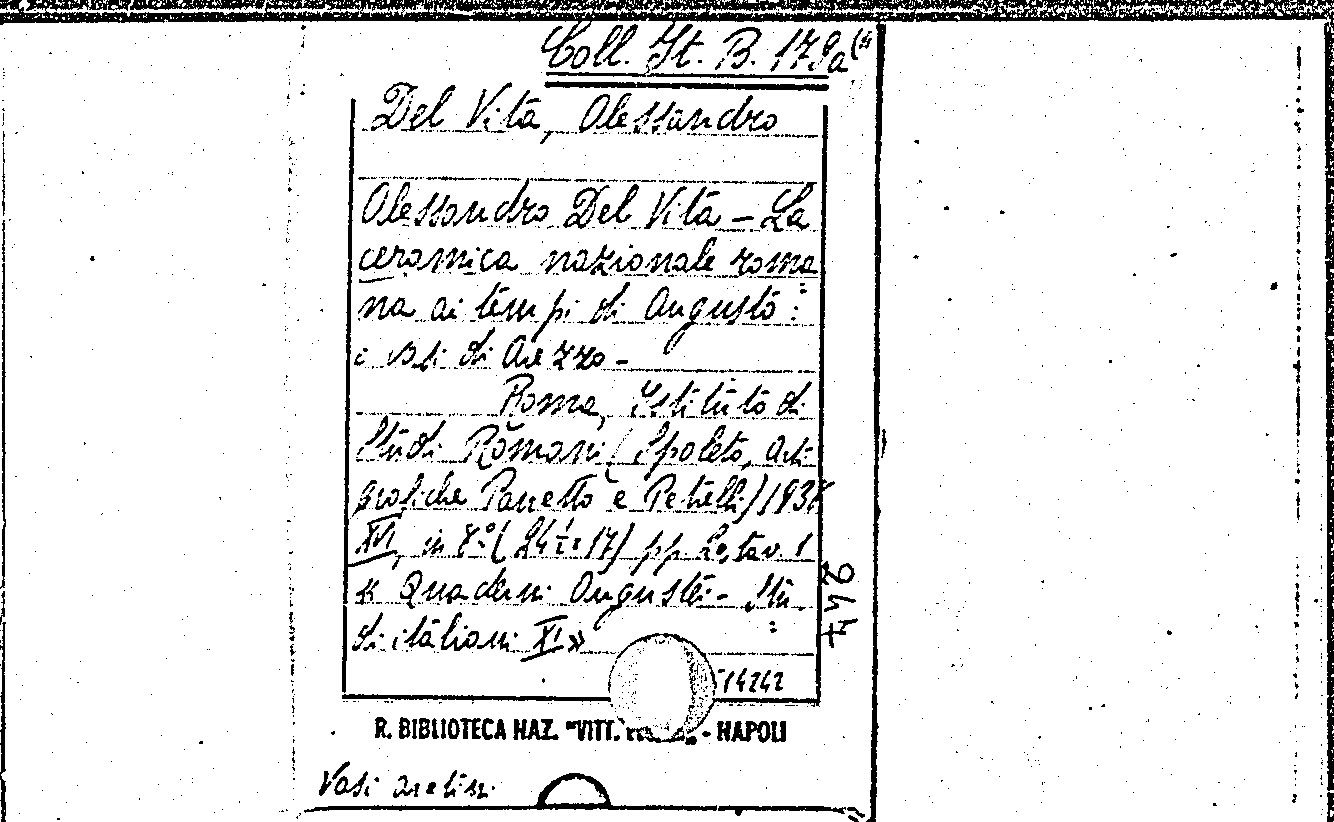 Coll. It. B. 179a(4
Del Vita, Alessandro
Alessandro Del Vita – La
ceramica nazionale roma
na ai tempi di Augusto:
i vasi di Arezzo –
Roma, Istituto di
Studi Romani (Spoleto, Arti
grafiche Panetto e Petrelli) 1938
XVI, in 8º (24½ x 17) pp. 20, tav. 1
« Quaderni Augustei – Stu
di italiani XI »
247
14242
R. BIBLIOTECA NAZ. "VITT. - NAPOLI
Vasi aretini